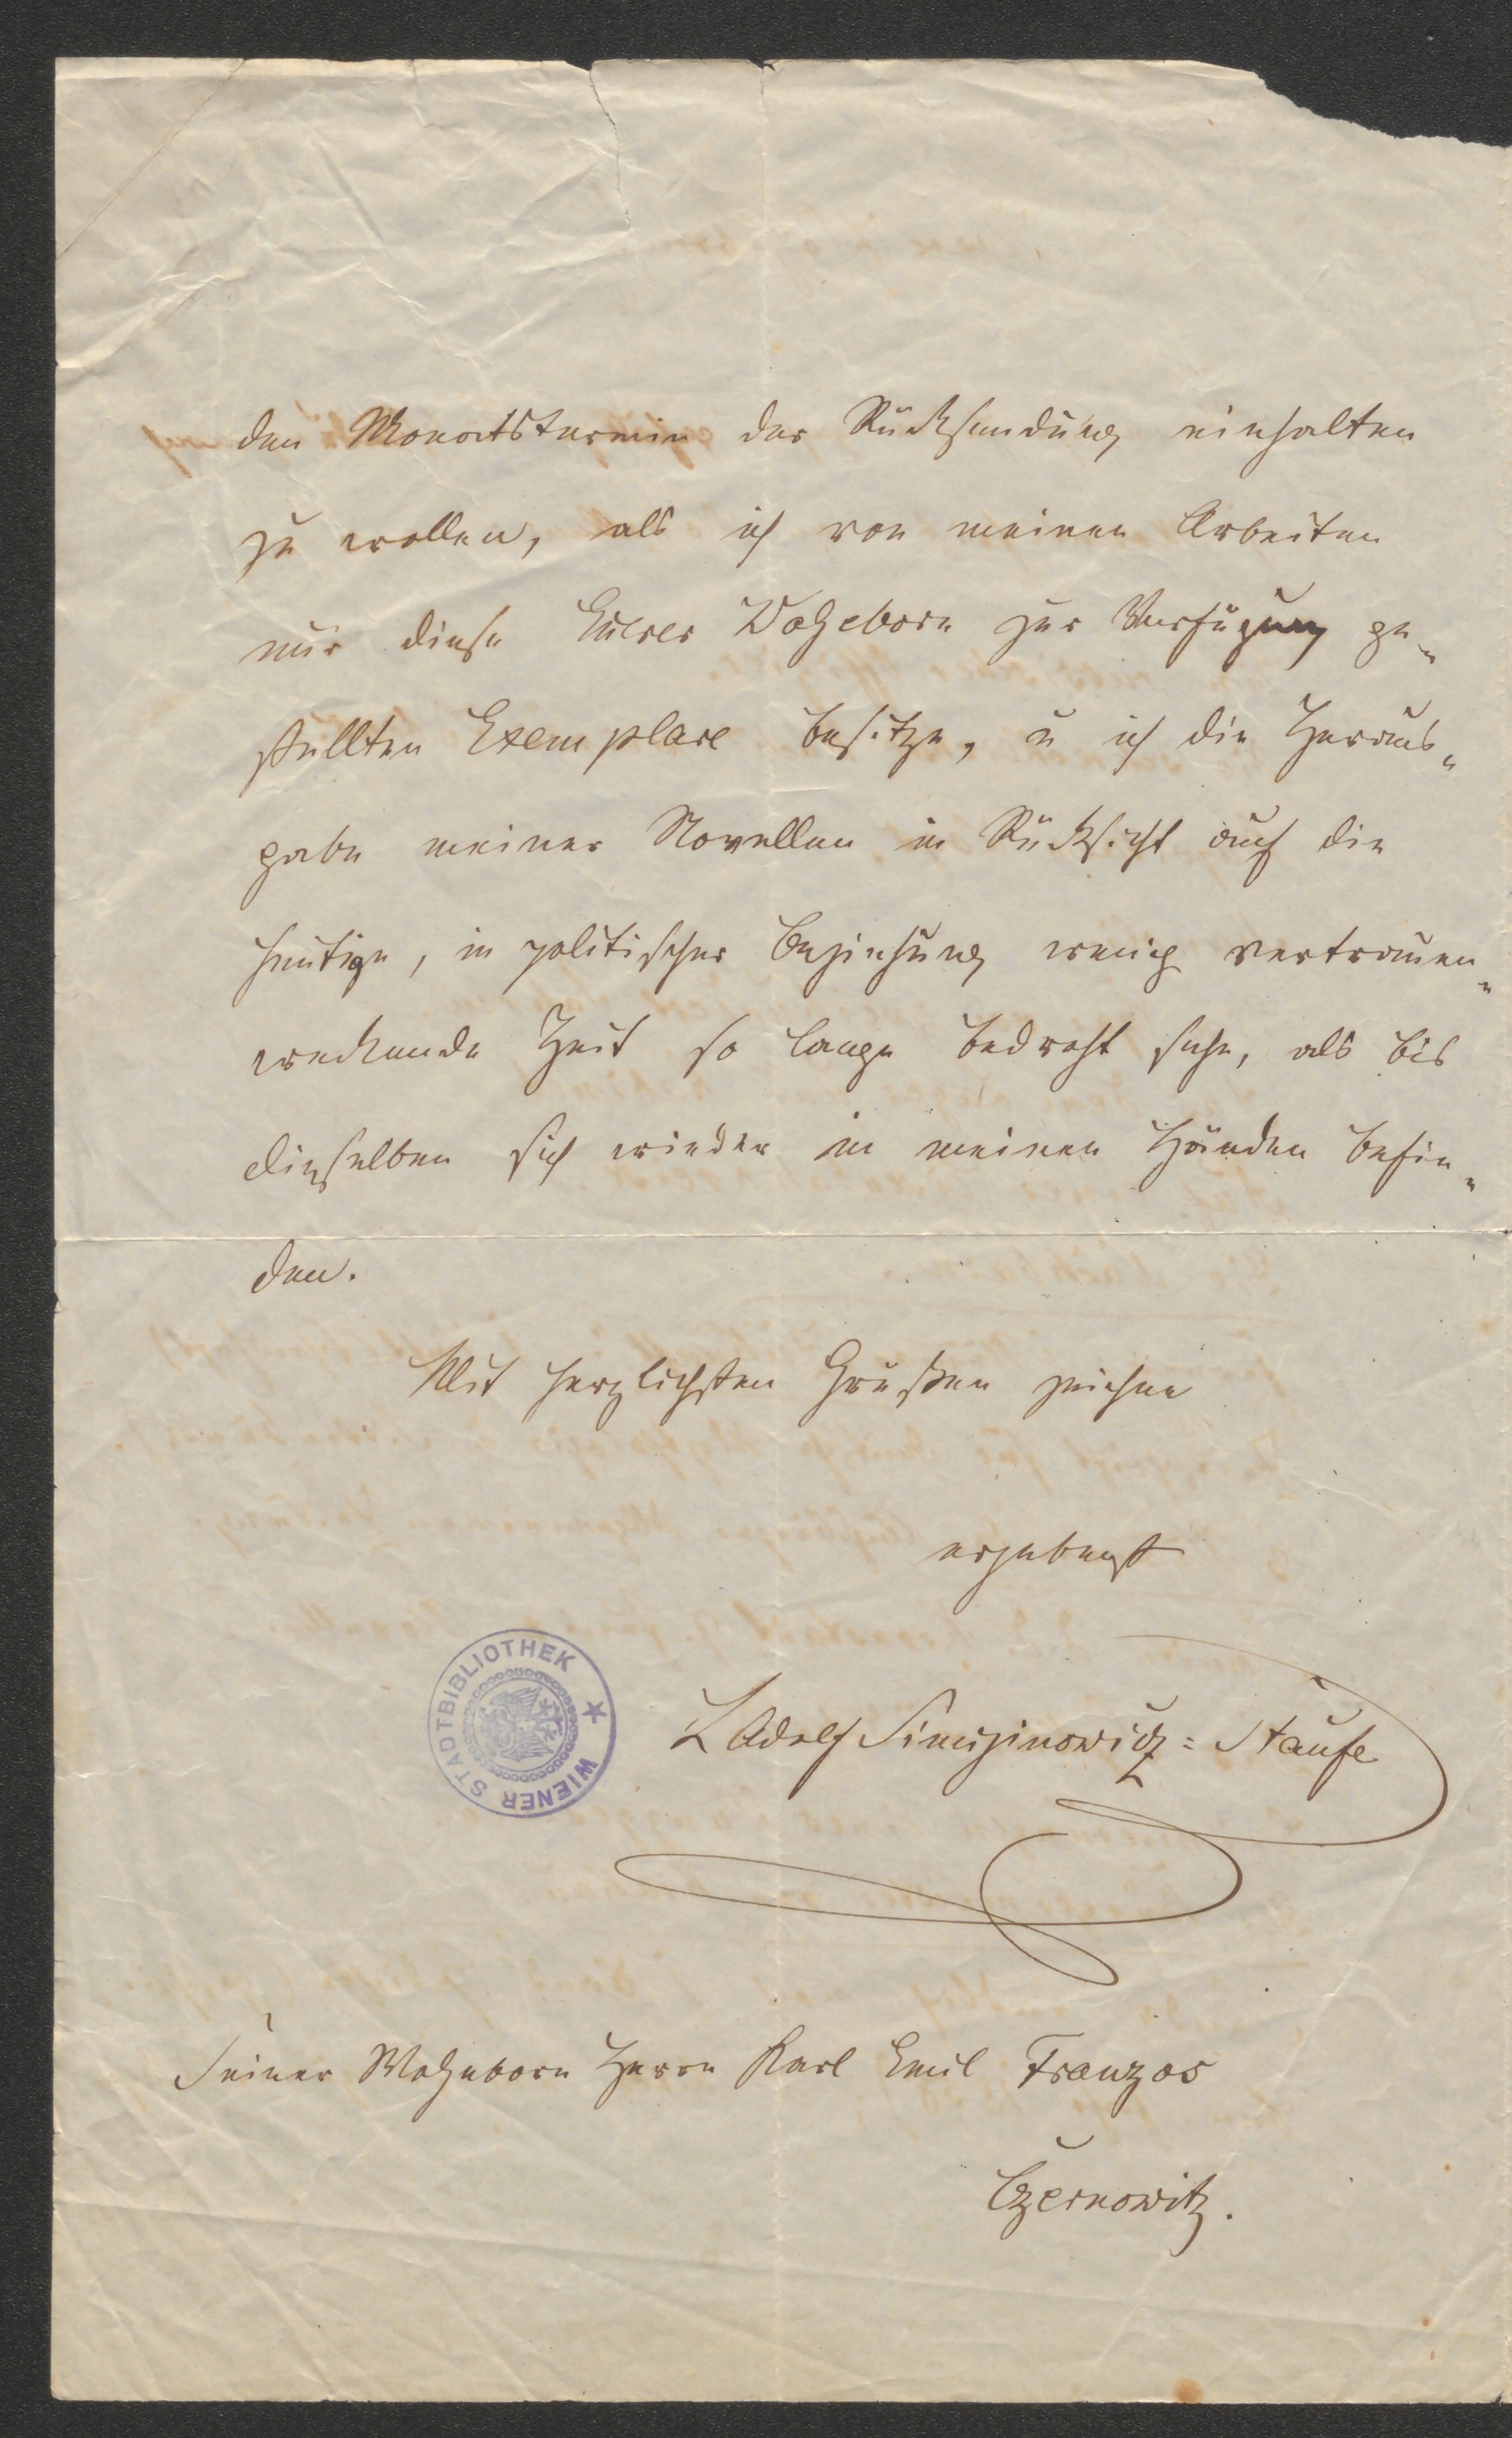 den Monatstermin der Rücksendung einhalten
zu wollen, als ich von meinen Arbeiten
nur diese Euerer Wolgeborn zur Verfügung ge„
stellten Exemplare besitze, u ich die Heraus„
gabe meiner Novellen in Rücksicht auf die
heutige, in politischer Beziehung wenig vertrauen„
weckende Zeit so lange bedroht sehe, als bis
dieselben sich wieder in meinen Händen befin„
den.
Mit herzlichsten Grüßen zeichne
ergebenst
LAdolf Simiginowicz=Staufe
WIENER STADTBIBLIOTHEK
Seiner Wolgeborn Herrn Karl Emil Franzos
Czernowitz.